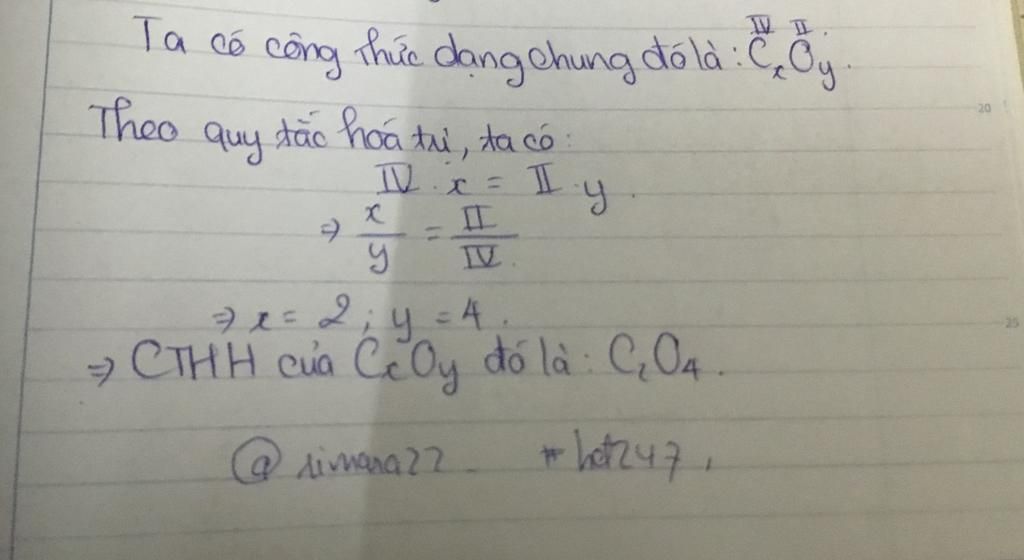 Ta có công thức dạng chung đó là: CₓOᵧ.
IV II
Theo quy tắc hoá trị, ta có:
IV . x = II . y.
⇒ x/y = II/IV.
⇒ x = 2; y = 4.
⇒ CTHH của CₓOy đó là: C₂O₄.
20
25